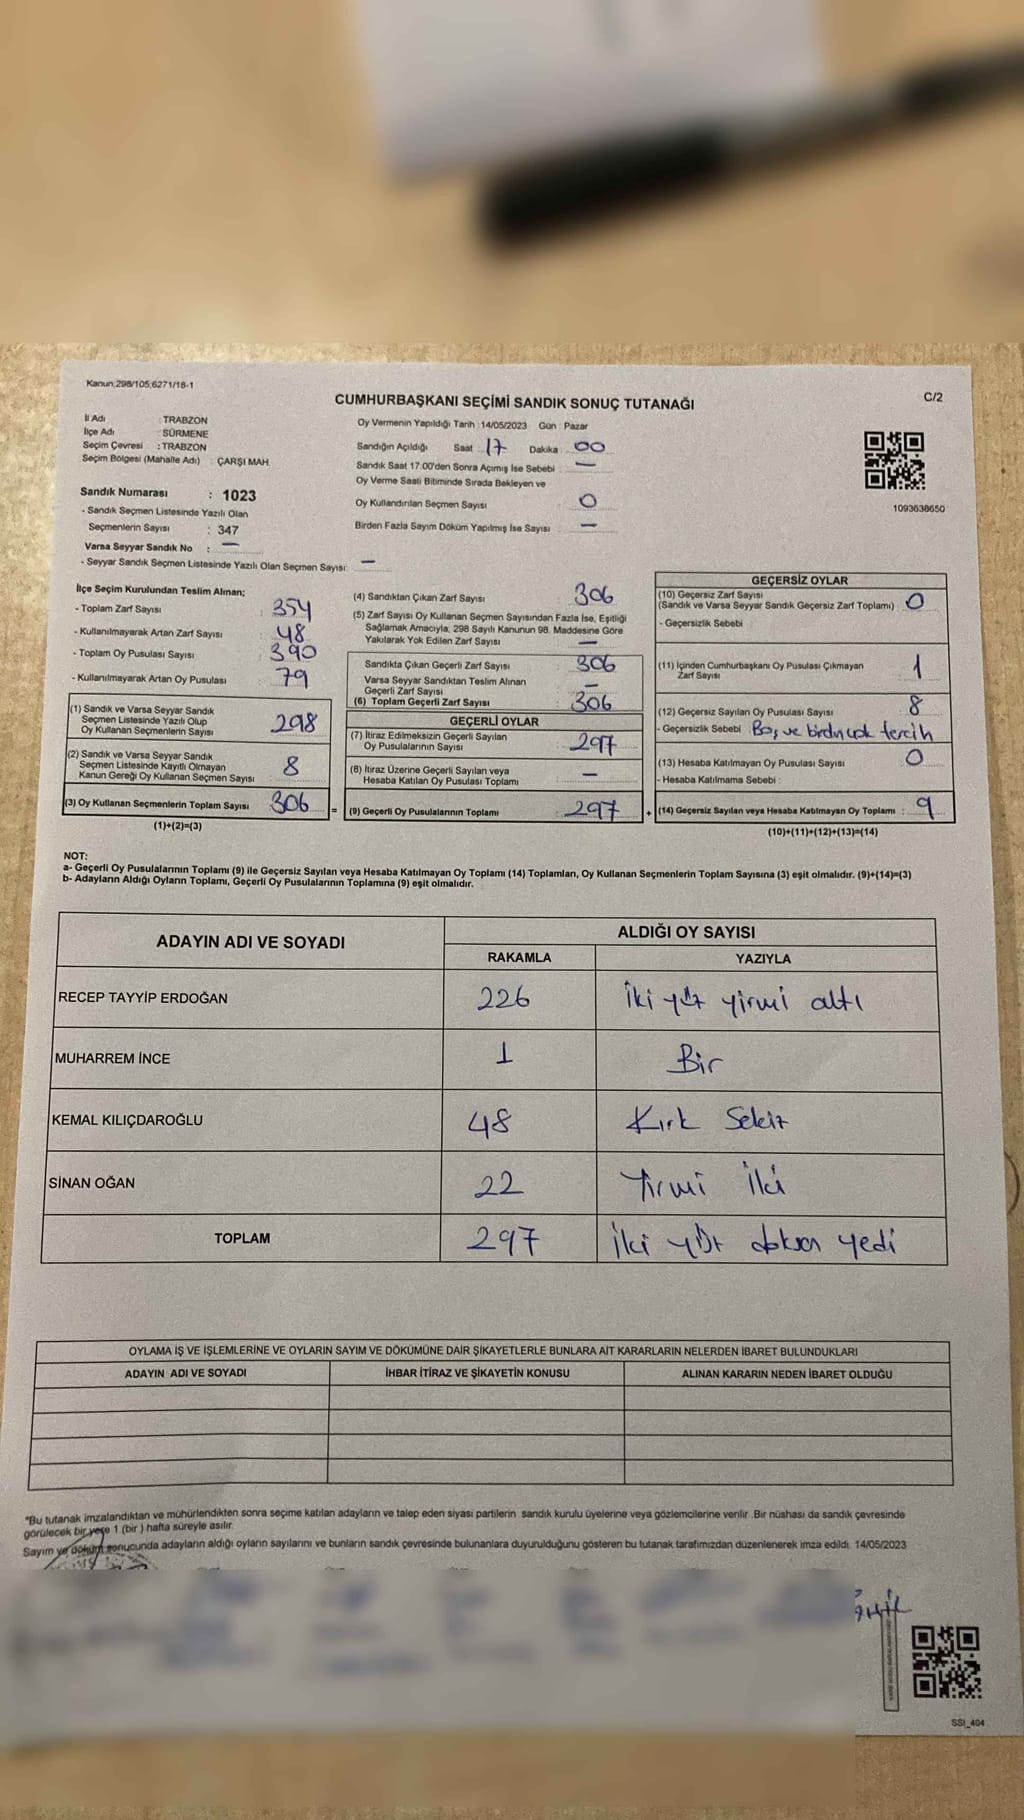 Kanun;298/105;6271/18-1
CUMHURBAŞKANI SEÇİMİ SANDIK SONUÇ TUTANAĞI
C/2
İl Adı : TRABZON
İlçe Adı : SÜRMENE
Seçim Çevresi : TRABZON
Seçim Bölgesi (Mahalle Adı) : ÇARŞI MAH.
Sandık Numarası : 1023
- Sandık Seçmen Listesinde Yazılı Olan
Seçmenlerin Sayısı : 347
Varsa Seyyar Sandık No : —
- Seyyar Sandık Seçmen Listesinde Yazılı Olan Seçmen Sayısı: —
Oy Vermenin Yapıldığı Tarih :14/05/2023 Gün : Pazar
Sandığın Açıldığı Saat 17 Dakika 00
Sandık Saat 17:00'den Sonra Açımış İse Sebebi —
Oy Verme Saati Bitiminde Sırada Bekleyen ve
Oy Kullandırılan Seçmen Sayısı 0
Birden Fazla Sayım Döküm Yapılmış İse Sayısı —
1093638650
İlçe Seçim Kurulundan Teslim Alınan;
- Toplam Zarf Sayısı 354
- Kullanılmayarak Artan Zarf Sayısı 48
- Toplam Oy Pusulası Sayısı 390
- Kullanılmayarak Artan Oy Pusulası 79
(1) Sandık ve Varsa Seyyar Sandık
Seçmen Listesinde Yazılı Olup
Oy Kullanan Seçmenlerin Sayısı 298
(2) Sandık ve Varsa Seyyar Sandık
Seçmen Listesinde Kayıtlı Olmayan
Kanun Gereği Oy Kullanan Seçmen Sayısı 8
(3) Oy Kullanan Seçmenlerin Toplam Sayısı 306 =
(1)+(2)=(3)
(4) Sandıktan Çıkan Zarf Sayısı 306
(5) Zarf Sayısı Oy Kullanan Seçmen Sayısından Fazla İse, Eşitliği
Sağlamak Amacıyla, 298 Sayılı Kanunun 98. Maddesine Göre
Yakılarak Yok Edilen Zarf Sayısı —
Sandıkta Çıkan Geçerli Zarf Sayısı 306
Varsa Seyyar Sandıktan Teslim Alınan
Geçerli Zarf Sayısı —
(6) Toplam Geçerli Zarf Sayısı 306
GEÇERLİ OYLAR
(7) İtiraz Edilmeksizin Geçerli Sayılan
Oy Pusulalarının Sayısı 297
(8) İtiraz Üzerine Geçerli Sayılan veya
Hesaba Katılan Oy Pusulası Toplamı —
(9) Geçerli Oy Pusulalarının Toplamı 297 +
GEÇERSİZ OYLAR
(10) Geçersiz Zarf Sayısı
(Sandık ve Varsa Seyyar Sandık Geçersiz Zarf Toplamı) : 0
- Geçersizlik Sebebi
(11) İçinden Cumhurbaşkanı Oy Pusulası Çıkmayan
Zarf Sayısı 1
(12) Geçersiz Sayılan Oy Pusulası Sayısı 8
- Geçersizlik Sebebi Boş ve birden çok tercih
(13) Hesaba Katılmayan Oy Pusulası Sayısı 0
- Hesaba Katılmama Sebebi :
(14) Geçersiz Sayılan veya Hesaba Katılmayan Oy Toplamı : 9
(10)+(11)+(12)+(13)=(14)
NOT:
a- Geçerli Oy Pusulalarının Toplamı (9) ile Geçersiz Sayılan veya Hesaba Katılmayan Oy Toplamı (14) Toplamları, Oy Kullanan Seçmenlerin Toplam Sayısına (3) eşit olmalıdır. (9)+(14)=(3)
b- Adayların Aldığı Oyların Toplamı, Geçerli Oy Pusulalarının Toplamına (9) eşit olmalıdır.
ADAYIN ADI VE SOYADI ALDIĞI OY SAYISI
RAKAMLA YAZIYLA
RECEP TAYYİP ERDOĞAN 226 İki yüz yirmi altı
MUHARREM İNCE 1 Bir
KEMAL KILIÇDAROĞLU 48 Kırk Sekiz
SİNAN OĞAN 22 Yirmi İki
TOPLAM 297 İki yüz doksan yedi
OYLAMA İŞ VE İŞLEMLERİNE VE OYLARIN SAYIM VE DÖKÜMÜNE DAİR ŞİKAYETLERLE BUNLARA AİT KARARLARIN NELERDEN İBARET BULUNDUKLARI
ADAYIN ADI VE SOYADI İHBAR İTİRAZ VE ŞİKAYETİN KONUSU ALINAN KARARIN NEDEN İBARET OLDUĞU
"Bu tutanak imzalandıktan ve mühürlendikten sonra seçime katılan adayların ve talep eden siyasi partilerin sandık kurulu üyelerine veya gözlemcilerine verilir. Bir nüshası da sandık çevresinde
görülecek bir yere 1 (bir ) hafta süreyle asılır.
Sayım ve döküm sonucunda adayların aldığı oyların sayılarını ve bunların sandık çevresinde bulunanlara duyurulduğunu gösteren bu tutanak tarafımızdan düzenlenerek imza edildi. 14/05/2023
SSI_404